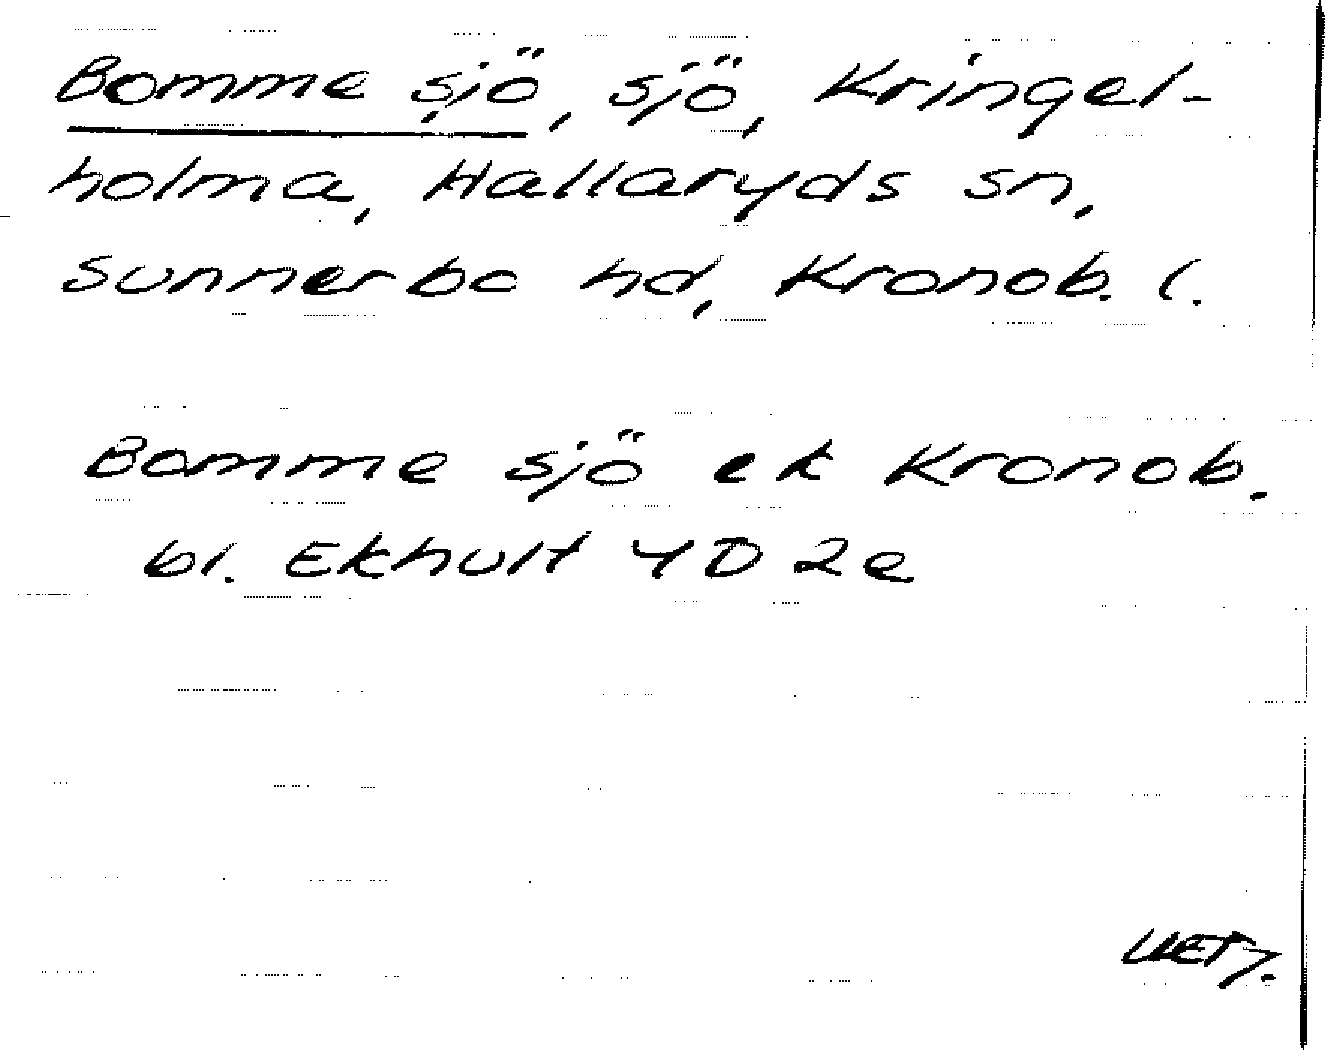 Bomme sjö, sjö, Kringel-
holma, Hallaryds sn,
Sunnerbo hd, Kronob. l.
Bomme sjö ek Kronob.
bl. Ekhult 4D 2e